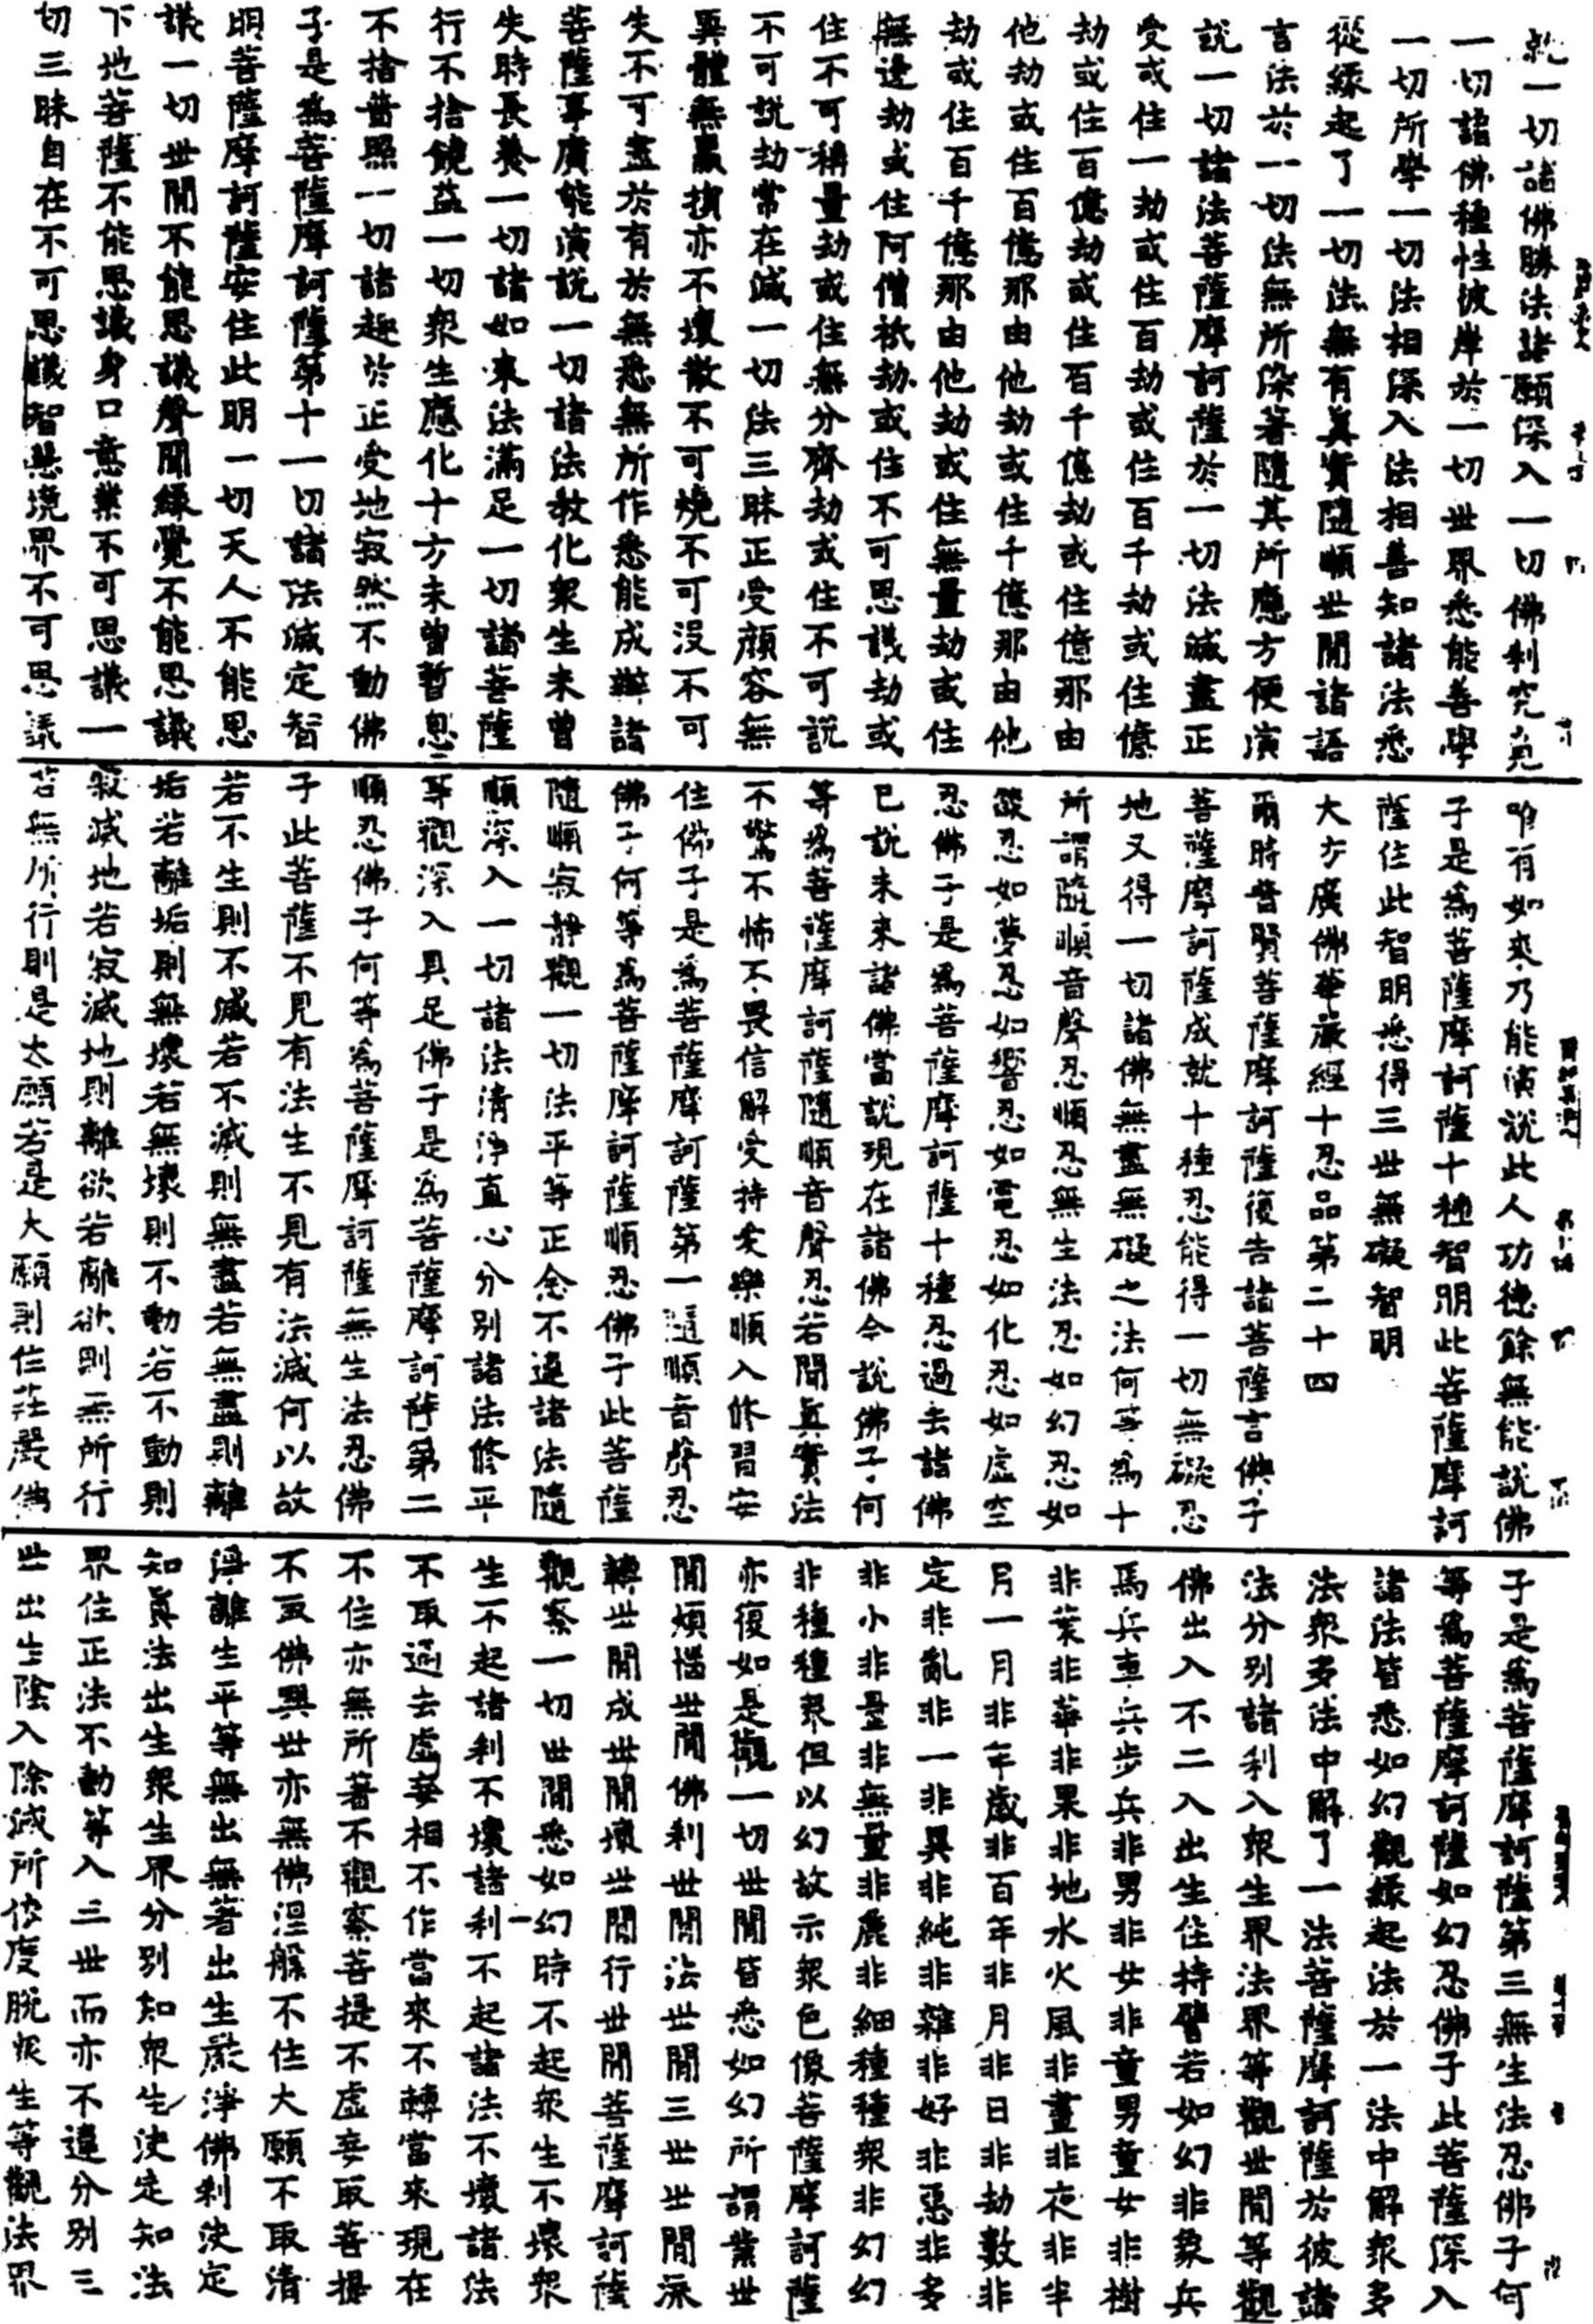 就一切諸佛勝法諸願深入一切佛刹究竟
一切諸佛種性彼岸於一切世界悉能善學
一切所學一切法相深入法相善知諸法悉
從緣起了一切法無有真實隨順世間諸語
言法於一切法無所染著隨其所應方便演
說一切諸法菩薩摩訶薩於一切法滅盡正
受或住一劫或住百劫或住百千劫或住億
劫或住百億劫或住百千億劫或住億那由
他劫或住百億那由他劫或住千億那由他
劫或住百千億那由他劫或住無量劫或住
無邊劫或住阿僧祇劫或住不可思議劫或
住不可稱量劫或住無分齊劫或住不可說
不可說劫常在滅一切法三昧正受顏容無
異體無羸損亦不壞散不可燒不可沒不可
失不可盡於有於無悉無所作悉能成辦諸
菩薩事廣能演說一切諸法教化衆生未曾
失時長養一切諸如來法滿足一切諸菩薩
行不捨饒益一切衆生應化十方未曾暫息
不捨普照一切諸趣於正受地寂然不動佛
子是爲菩薩摩訶薩第十一切諸法滅定智
明菩薩摩訶薩安住此明一切天人不能思
議一切世間不能思議聲聞緣覺不能思議
下地菩薩不能思議身口意業不可思議一
切三昧自在不可思議智慧境界不可思議
唯有如來乃能演說此人功德餘無能說佛
子是爲菩薩摩訶薩十種智明此菩薩摩訶
薩住此智明悉得三世無礙智明
大方廣佛華嚴經十忍品第二十四
爾時普賢菩薩摩訶薩復告諸菩薩言佛子
菩薩摩訶薩成就十種忍能得一切無礙忍
地又得一切諸佛無盡無礙之法何等爲十
所謂隨順音聲忍順忍無生法忍如幻忍如
燄忍如夢忍如響忍如電忍如化忍如虛空
忍佛子是爲菩薩摩訶薩十種忍過去諸佛
已說未來諸佛當說現在諸佛今說佛子何
等爲菩薩摩訶薩隨順音聲忍若聞真實法
不驚不怖不畏信解受持愛樂順入修習安
住佛子是爲菩薩摩訶薩第一隨順音聲忍
佛子何等爲菩薩摩訶薩順忍佛子此菩薩
隨順寂靜觀一切法平等正念不違諸法隨
順深入一切諸法清淨直心分別諸法修平
等觀深入具足佛子是爲菩薩摩訶薩第二
順忍佛子何等爲菩薩摩訶薩無生法忍佛
子此菩薩不見有法生不見有法滅何以故
若不生則不滅若不滅則無盡若無盡則離
垢若離垢則無壞若無壞則不動若不動則
寂滅地若寂滅地則離欲若離欲則無所行
若無所行則是大願若是大願則住莊嚴佛
子是爲菩薩摩訶薩第三無生法忍佛子何
等爲菩薩摩訶薩如幻忍佛子此菩薩深入
諸法皆悉如幻觀緣起法於一法中解衆多
法衆多法中解了一法菩薩摩訶薩於彼諸
法分別諸刹入衆生界法界等觀世間等觀
佛出入不二入出生住持譬若如幻非象兵
馬兵車兵步兵非男非女非童男童女非樹
非葉非華非果非地水火風非晝非夜非半
月一月非年歲非百年非月非日非劫數非
定非亂非一非異非純非雜非好非惡非多
非小非量非無量非麁非細種種衆非幻幻
非種種衆但以幻故示衆色像菩薩摩訶薩
亦復如是觀一切世間皆悉如幻所謂業世
間煩惱世間佛刹世間法世間三世世間流
轉世間成世間壞世間行世間菩薩摩訶薩
觀察一切世間悉如幻時不起衆生不壞衆
生不起諸刹不壞諸刹不起諸法不壞諸法
不取過去虛妄相不作當來不轉當來現在
不住亦無所著不觀察菩提不虛妄取菩提
不取佛興世亦無佛涅槃不住大願不取清
淨離生平等無出無著出生嚴淨佛刹決定
知真法出生衆生界分別知衆生決定知法
界住正法不動等入三世而亦不違分別三
世出生陰入除滅所依度脫衆生等觀法界